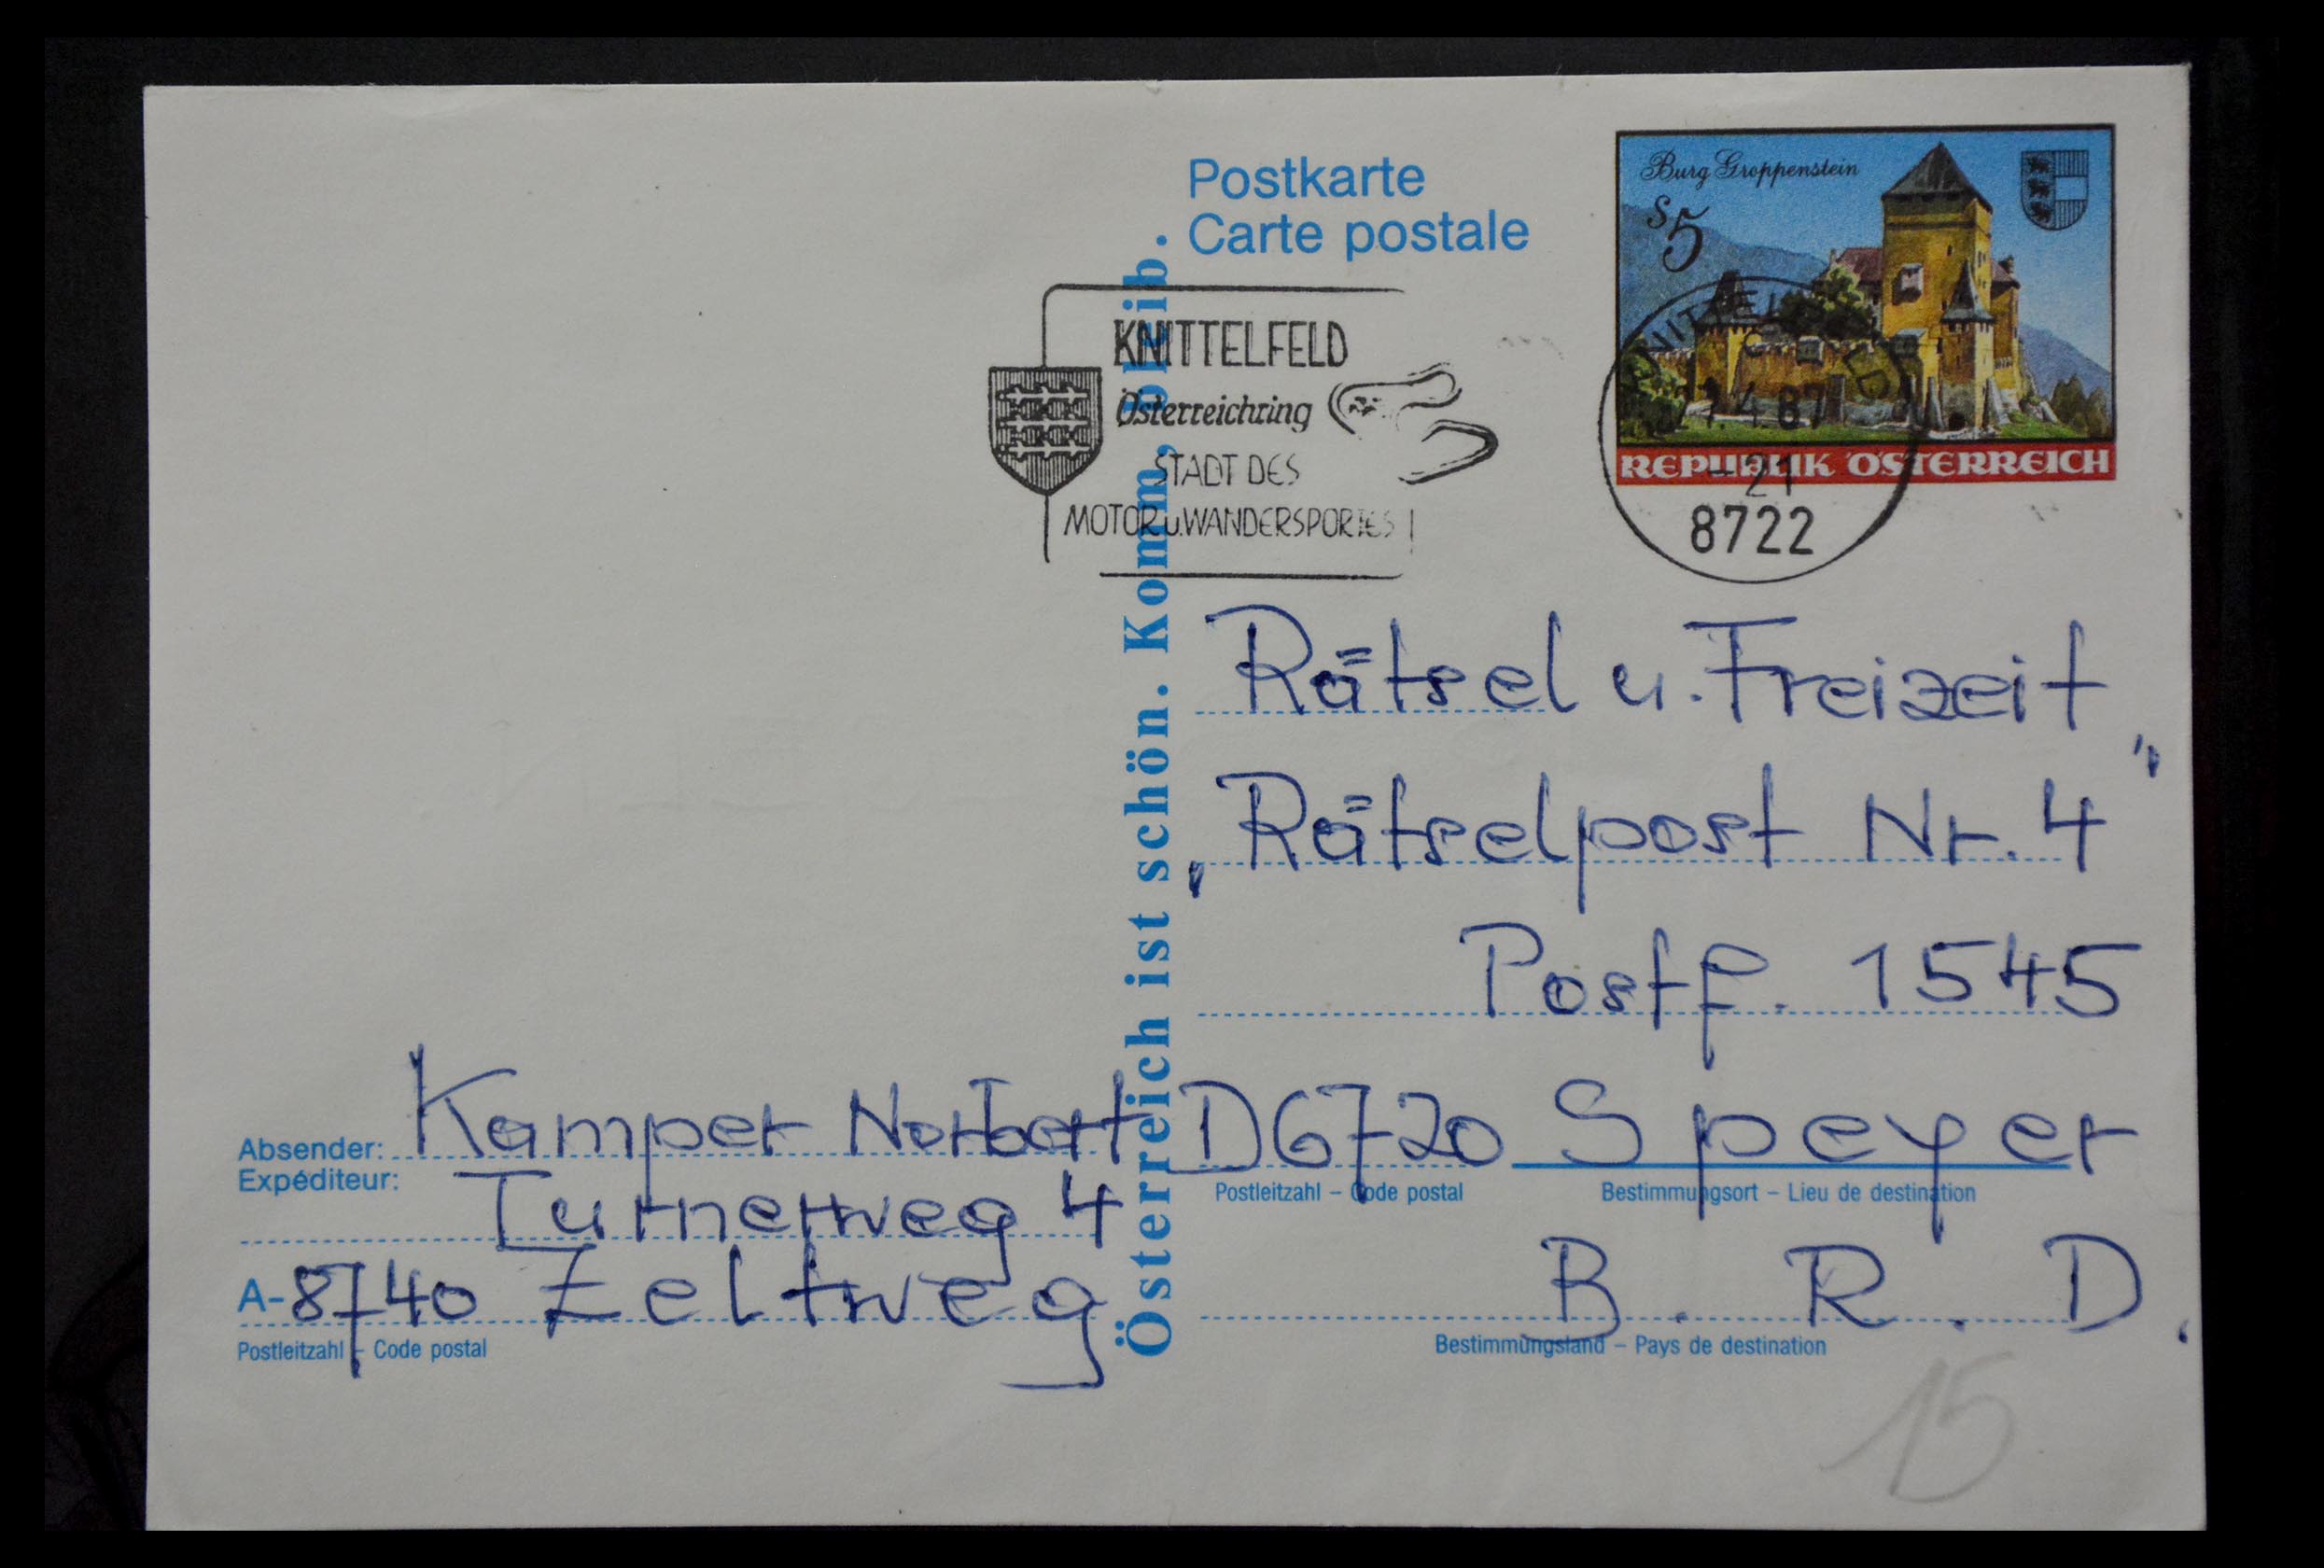 Postkarte
Carte postale
Burg Groppenstein
S5
REPUBLIK ÖSTERREICH
KNITTELFELD
Österreichring
STADT DES
MOTOR u. WANDERSPORTES
4 87
- 21
8722
Österreich ist schön. Komm, bleib.
Rätsel u. Freizeit
„Rätselpost Nr. 4"
Postf. 1545
D6720 Speyer
Postleitzahl – Code postal
Bestimmungsort – Lieu de destination
B. R. D.
Bestimmungsland – Pays de destination
Absender: Kamper Norbert
Expéditeur: Turnerweg 4
A-8740 Zeltweg
Postleitzahl – Code postal
15